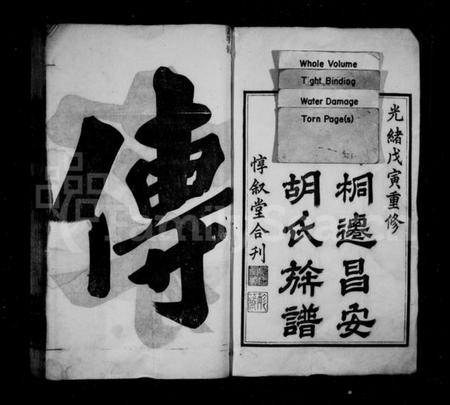 傳
Whole Volume
Tight Binding
Water Damage
Torn Page(s)
光緒戊寅重修
桐邊昌安
胡氏族譜
惇叙堂合刊
FamilySearch